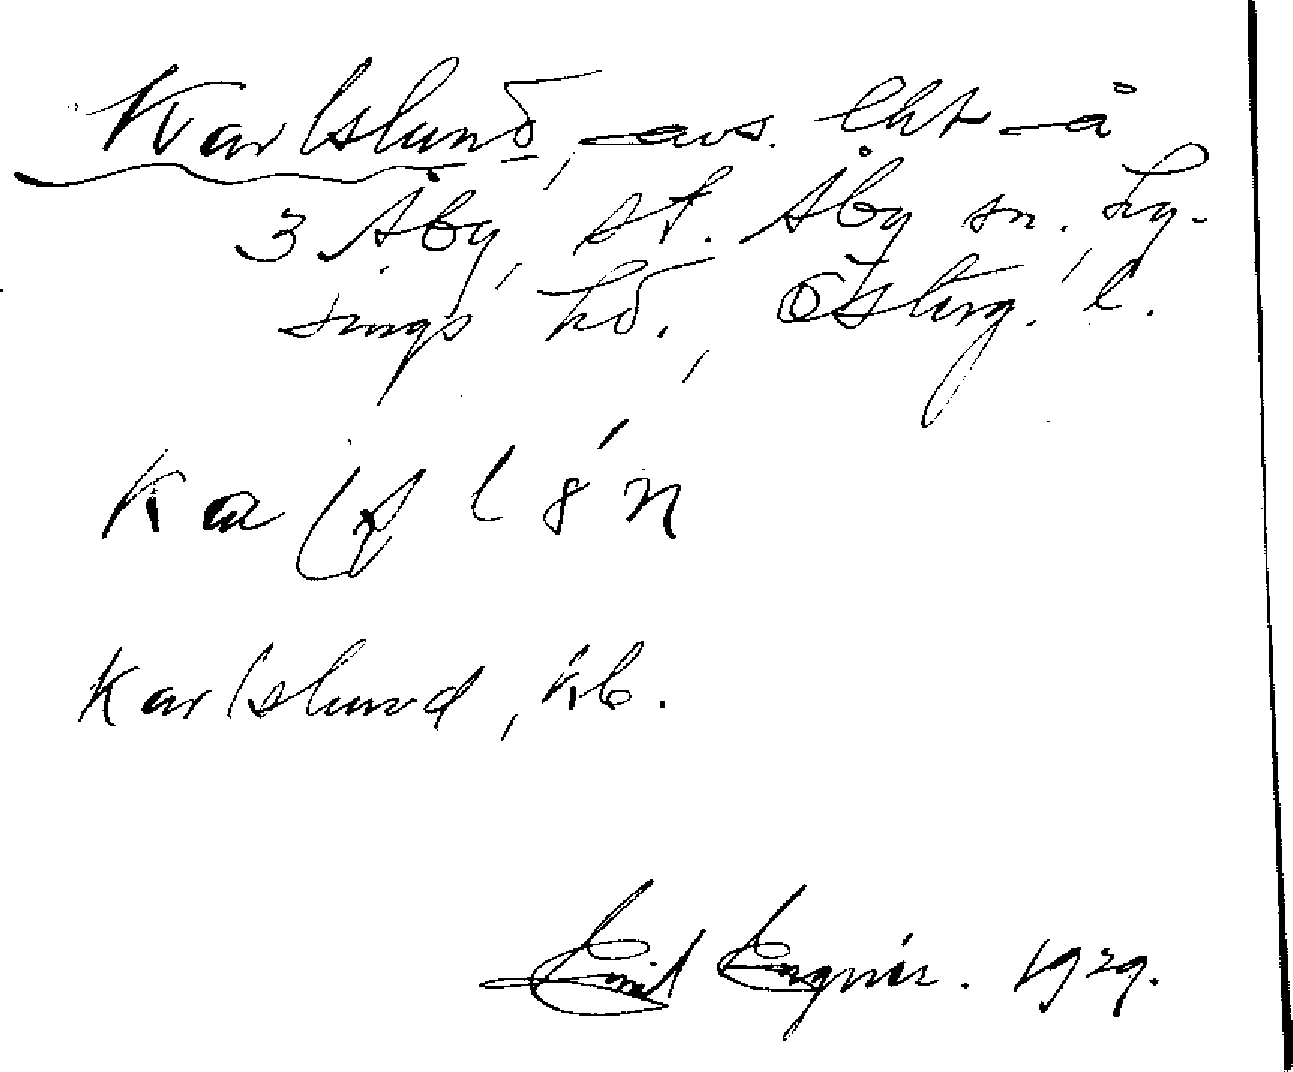 Karlslund, avs. lht å
3 Åby, St. Åby sn. Ly-
sings hd., Österg. l.
Karlslund, kb.
Emil Engnér. 1929.